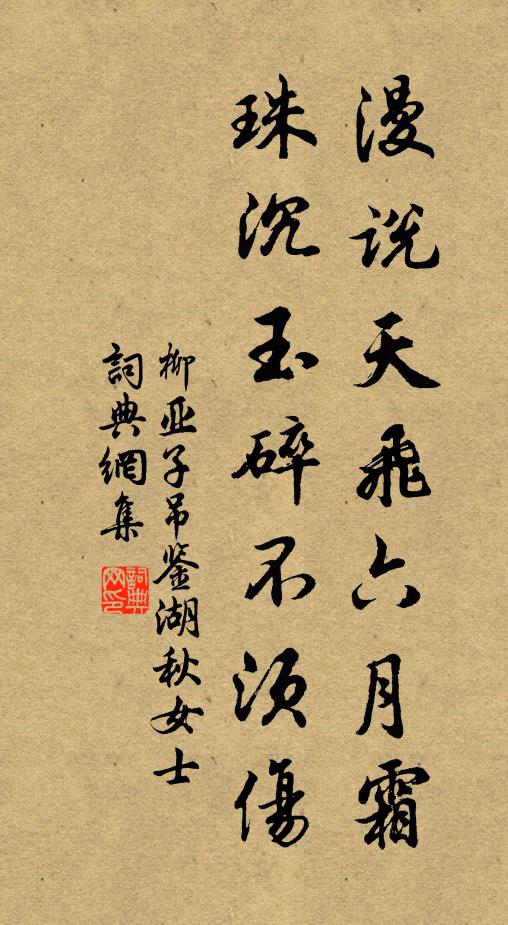 漫说天飛六月霜
珠沉玉碎不須傷
柳亚子吊鉴湖秋女士
詞典網集
詞典网印